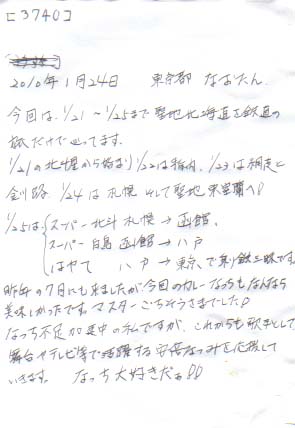 [3740]
2010年1月24日 東京都 なおたん
今回は、1/21〜1/25まで聖地北海道を鉄道の
旅だけで回ってます。
1/21の北斗星から始まり1/22は稚内、1/23は網走と
釧路、1/24は札幌そして聖地東室蘭へ!
1/25は スーパー北斗 札幌→函館、
スーパー白鳥 函館→八戸
はやて 八戸→東京、で乗り鉄三昧です。
昨年の7月にも来ましたが今回のカレーなっちもなんなら
美味しかったです。マスターごちそうさまでした!
なっち不足加速中の私ですが、これからも歌手として
舞台やテレビ等で活躍する安倍なつみを応援して
いきます。 なっち大好きだぁ!!